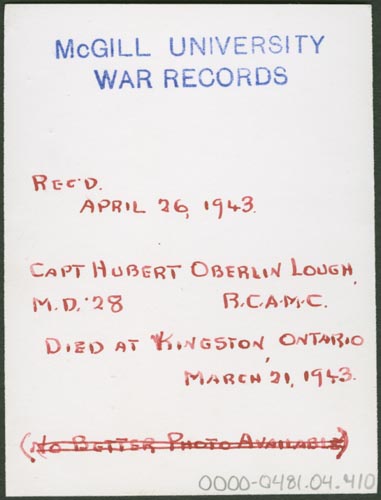 McGILL UNIVERSITY
WAR RECORDS
REC'D.
APRIL 26, 1943.
CAPT HUBERT OBERLIN LOUGH,
M.D. '28 R.C.A.M.C.
DIED AT KINGSTON, ONTARIO
MARCH 21, 1943.
(NO BETTER PHOTO AVAILABLE)
0000-0481.04.410